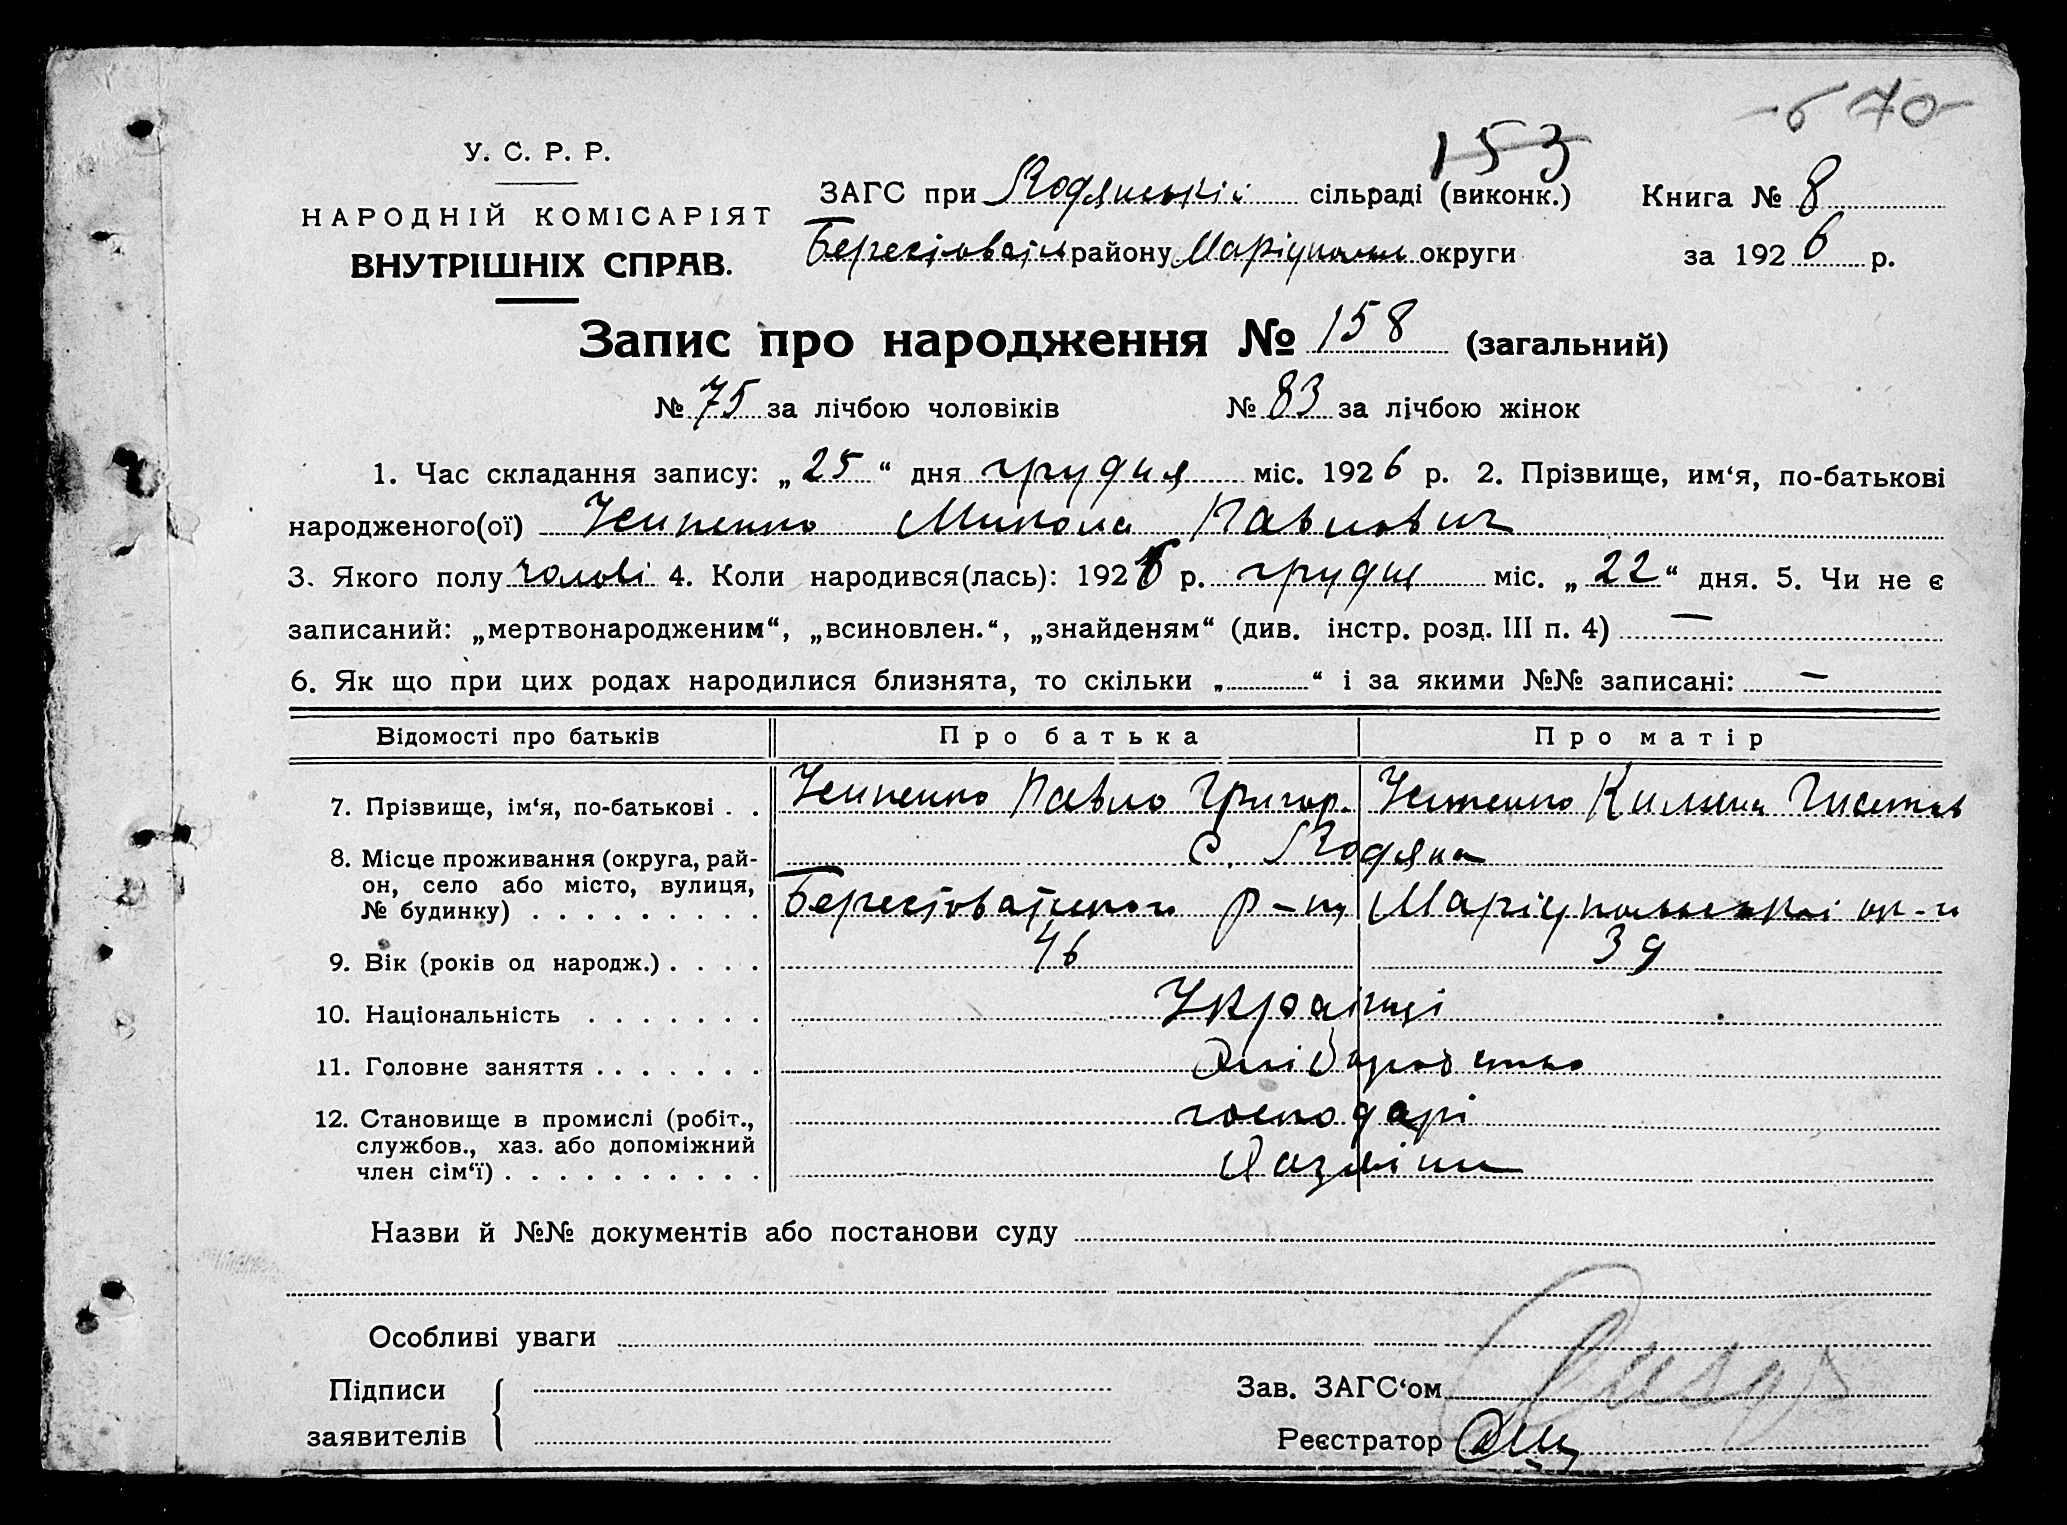 -670-
153
У. С. Р. Р.
НАРОДНІЙ КОМІСАРІЯТ
ВНУТРІШНІХ СПРАВ.
ЗАГС при Кодянській сільраді (виконк.) Книга № 8
Берестоват району Маріупольс округи за 1926 р.
Запис про народження № 158 (загальний)
№ 75 за лічбою чоловіків № 83 за лічбою жінок
1. Час складання запису: „25“ дня грудня міс. 1926 р. 2. Прізвище, им‘я, по-батькові
народженого(ої) Усипенко Микола Павлович
3. Якого полу чолові 4. Коли народився(лась): 1926 р. грудня міс. „22“ дня. 5. Чи не є
записаний: „мертвонародженим“, „всиновлен.“, „знайденям“ (див. інстр. розд. III п. 4) —
6. Як що при цих родах народилися близнята, то скільки „ “ і за якими №№ записані: —
Відомості про батьків Про батька Про матір
7. Прізвище, ім‘я, по-батькові . . Усипенко Павло Григор. Усипенко
8. Місце проживання (округа, рай-
он, село або місто, вулиця,
№ будинку) . . . . . . . . .
с. Кодяна
Берестоватського р-ну Маріупольської ок-и
9. Вік (років од народж.) . . . . 46 39
10. Національність . . . . . . . Українці
11. Головне заняття . . . . . . . Хліборобство
12. Становище в промислі (робіт.,
службов., хаз. або допоміжний
член сім‘ї) . . . . . . . . . .
господарі
Назви й №№ документів або постанови суду
Особливі уваги
Підписи
заявителів
Зав. ЗАГС‘ом
Реєстратор